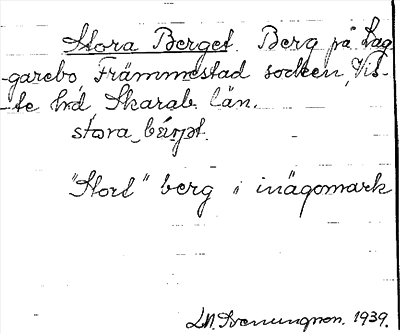 Stora Berget. Berg på Lag-
garebo, Främmestad socken, Vis-
te hd, Skarab. län.
stora bærjət.
"Stort" berg i inägomark
L.N. Svenungson. 1939.